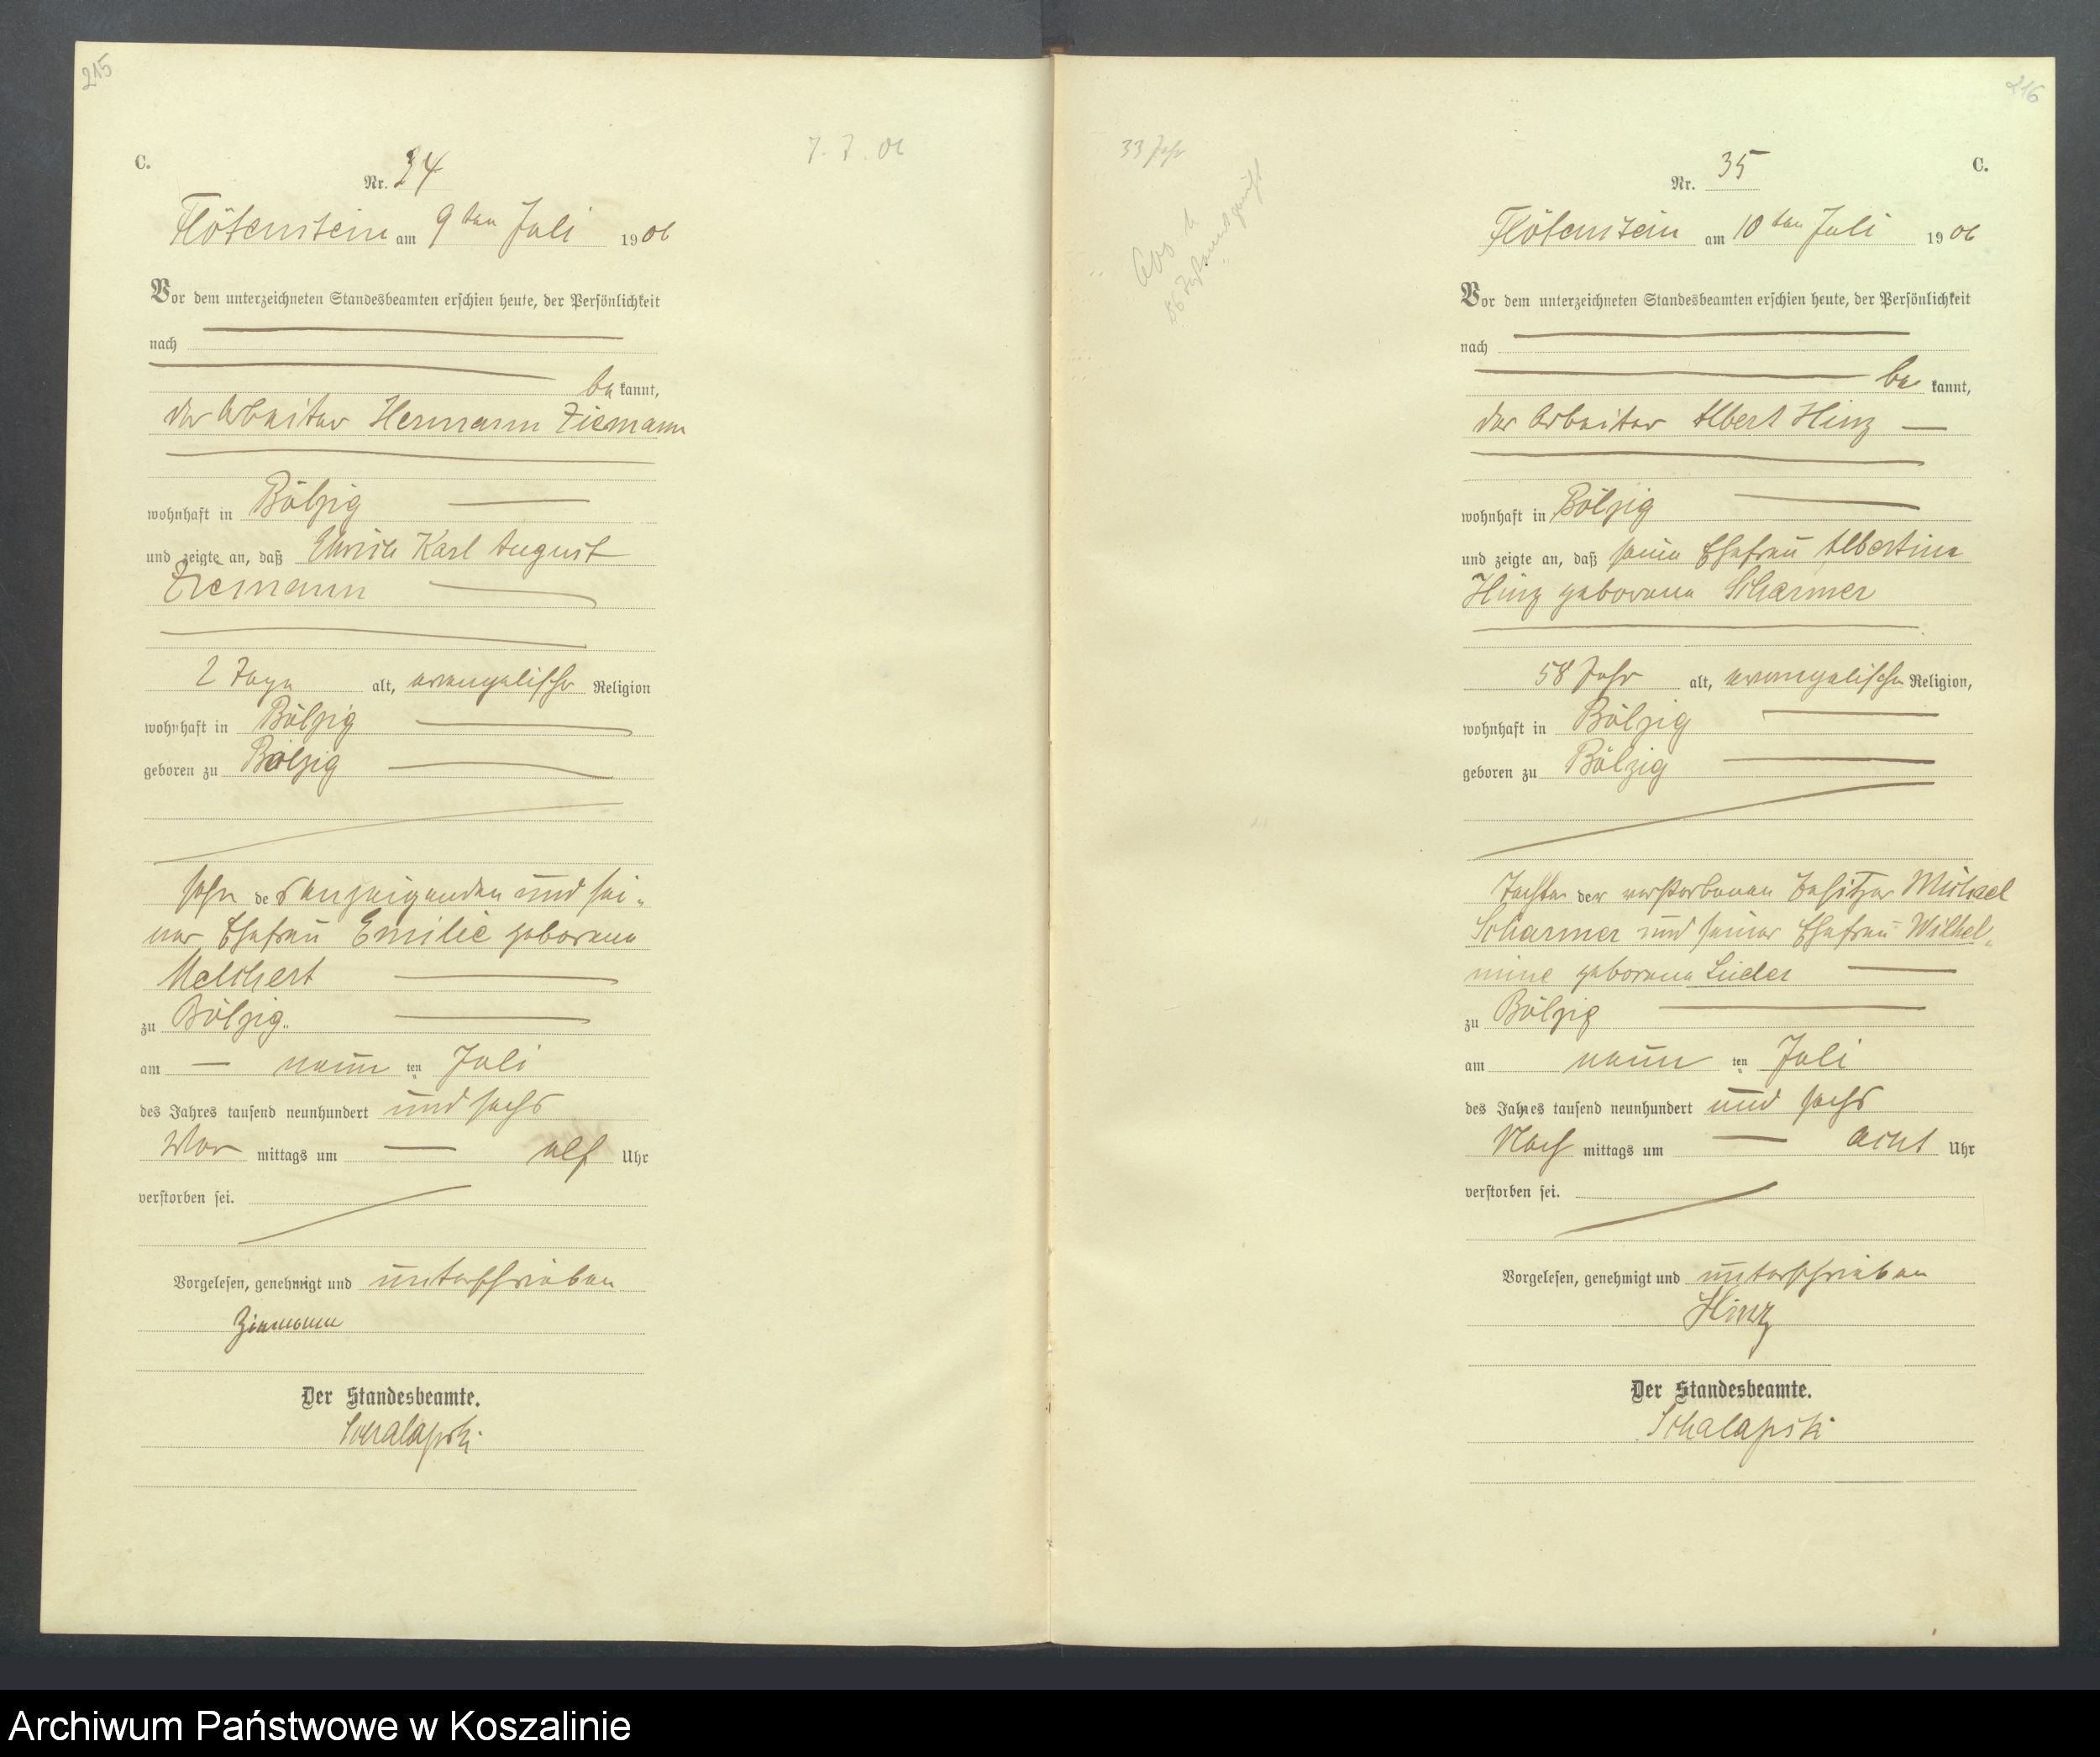 215
C.
7. 7. 06
Nr. 34
Flötenstein am 9 ten Juli 1906
Vor dem unterzeichneten Standesbeamten erschien heute, der Persönlichkeit
nach
be kannt,
der Arbeiter Hermann Ziemann
wohnhaft in Bölzig
und zeigte an, daß Karl August
Ziemann
2 Tage alt, evangelischer Religion
wohnhaft in Bölzig
geboren zu Bölzig
Sohn des Anzeigenden und sei-
ner Ehefrau Emilie geborene
Melchert
zu Bölzig
am neun ten Juli
des Jahres tausend neunhundert und sechs
Vor mittags um elf Uhr
verstorben sei.
Vorgelesen, genehmigt und unterschrieben
Ziemann
Der Standesbeamte.
Schalapski
216
33 Jahr
C.
Nr. 35
Flötenstein am 10 ten Juli 1906
Vor dem unterzeichneten Standesbeamten erschien heute, der Persönlichkeit
nach
be kannt,
der Arbeiter Albert Hinz
wohnhaft in Bölzig
und zeigte an, daß seine Ehefrau Albertine
Hinz geborene Scharmer
58 Jahr alt, evangelischer Religion,
wohnhaft in Bölzig
geboren zu Bölzig
Tochter der verstorbenen Besitzer Michael
Scharmer und seiner Ehefrau Wilhel-
mine geborene Lüder
zu Bölzig
am neun ten Juli
des Jahres tausend neunhundert und sechs
Nach mittags um acht Uhr
verstorben sei.
Vorgelesen, genehmigt und unterschrieben
Hinz
Der Standesbeamte.
Schalapski
Archiwum Państwowe w Koszalinie